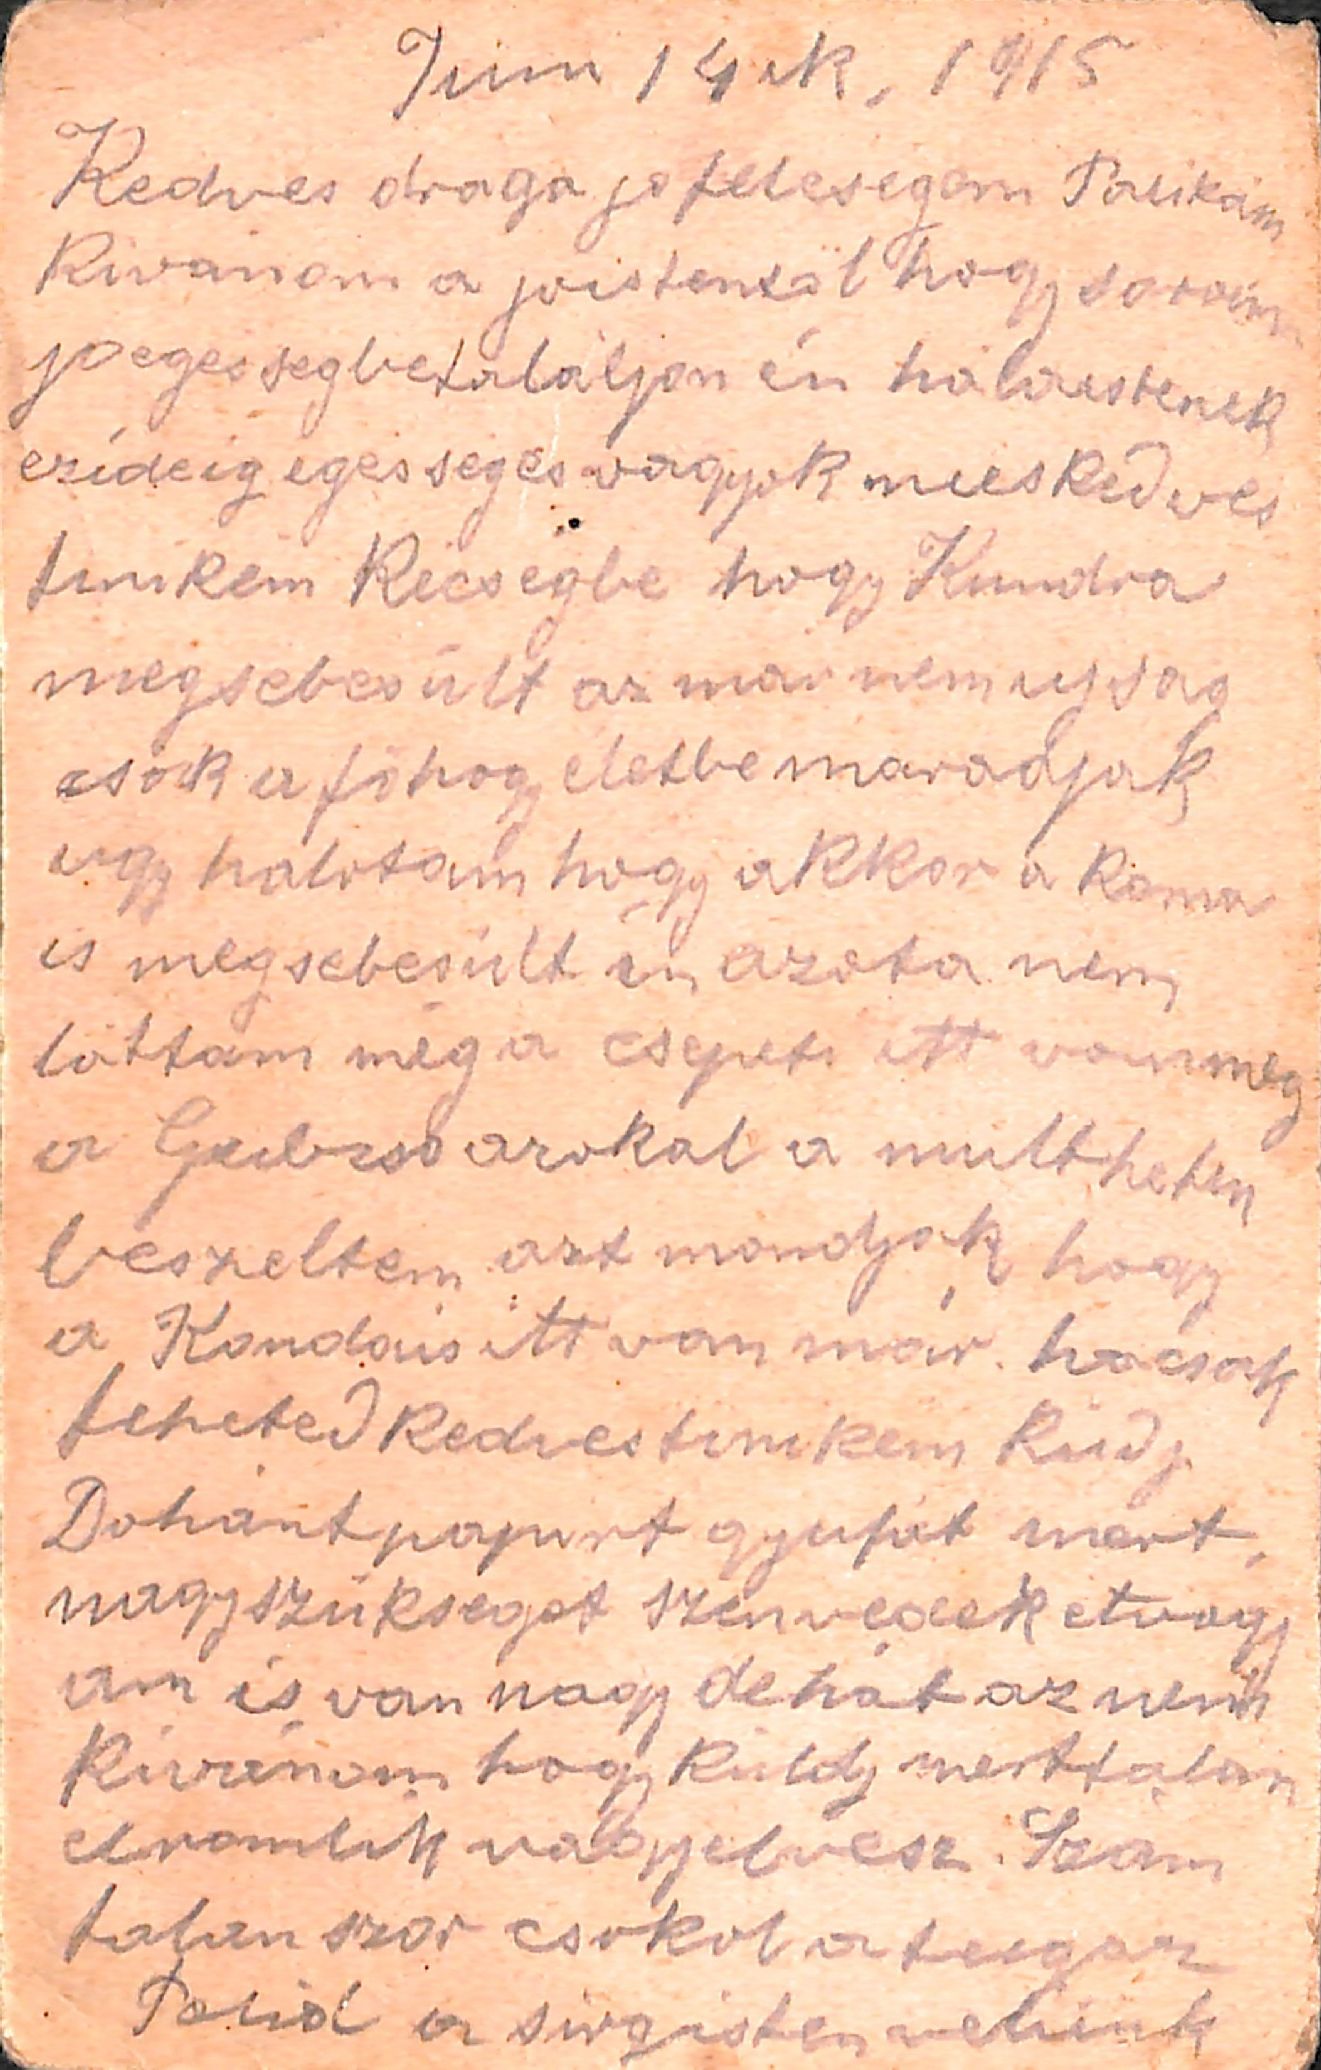 Jun 14 ik, 1915
Kedves draga jo felesegem Palikám
Kivánom a joistentöl hogy soraim
joegessegbetalaljon én hálaistenek
ezideig egesseges vagyok
tinikém Kicsegbe hogy Kundra
megsebesült az már nem ujsag
csak a föhog életbe maradjak
ugy halotam hogy akkor a Roma
is megsebesült én azota nem
láttam még a csepeti itt van meg
a Gubzso azokal a mult heten
beszeltem azt mondjak hogy
a Kondáis itt van már. hacsak
teheted kedvestinikém Küdj
Dohánt papirt gyufát mert,
nagyszükseget szenvedek etvágy
am is van nagy de hát az nem
kivánom hogy küldj merttalan
elromlik vagyelvesz. Szám
talanszor csokol a teigaz
Palid a sirgisten velünk